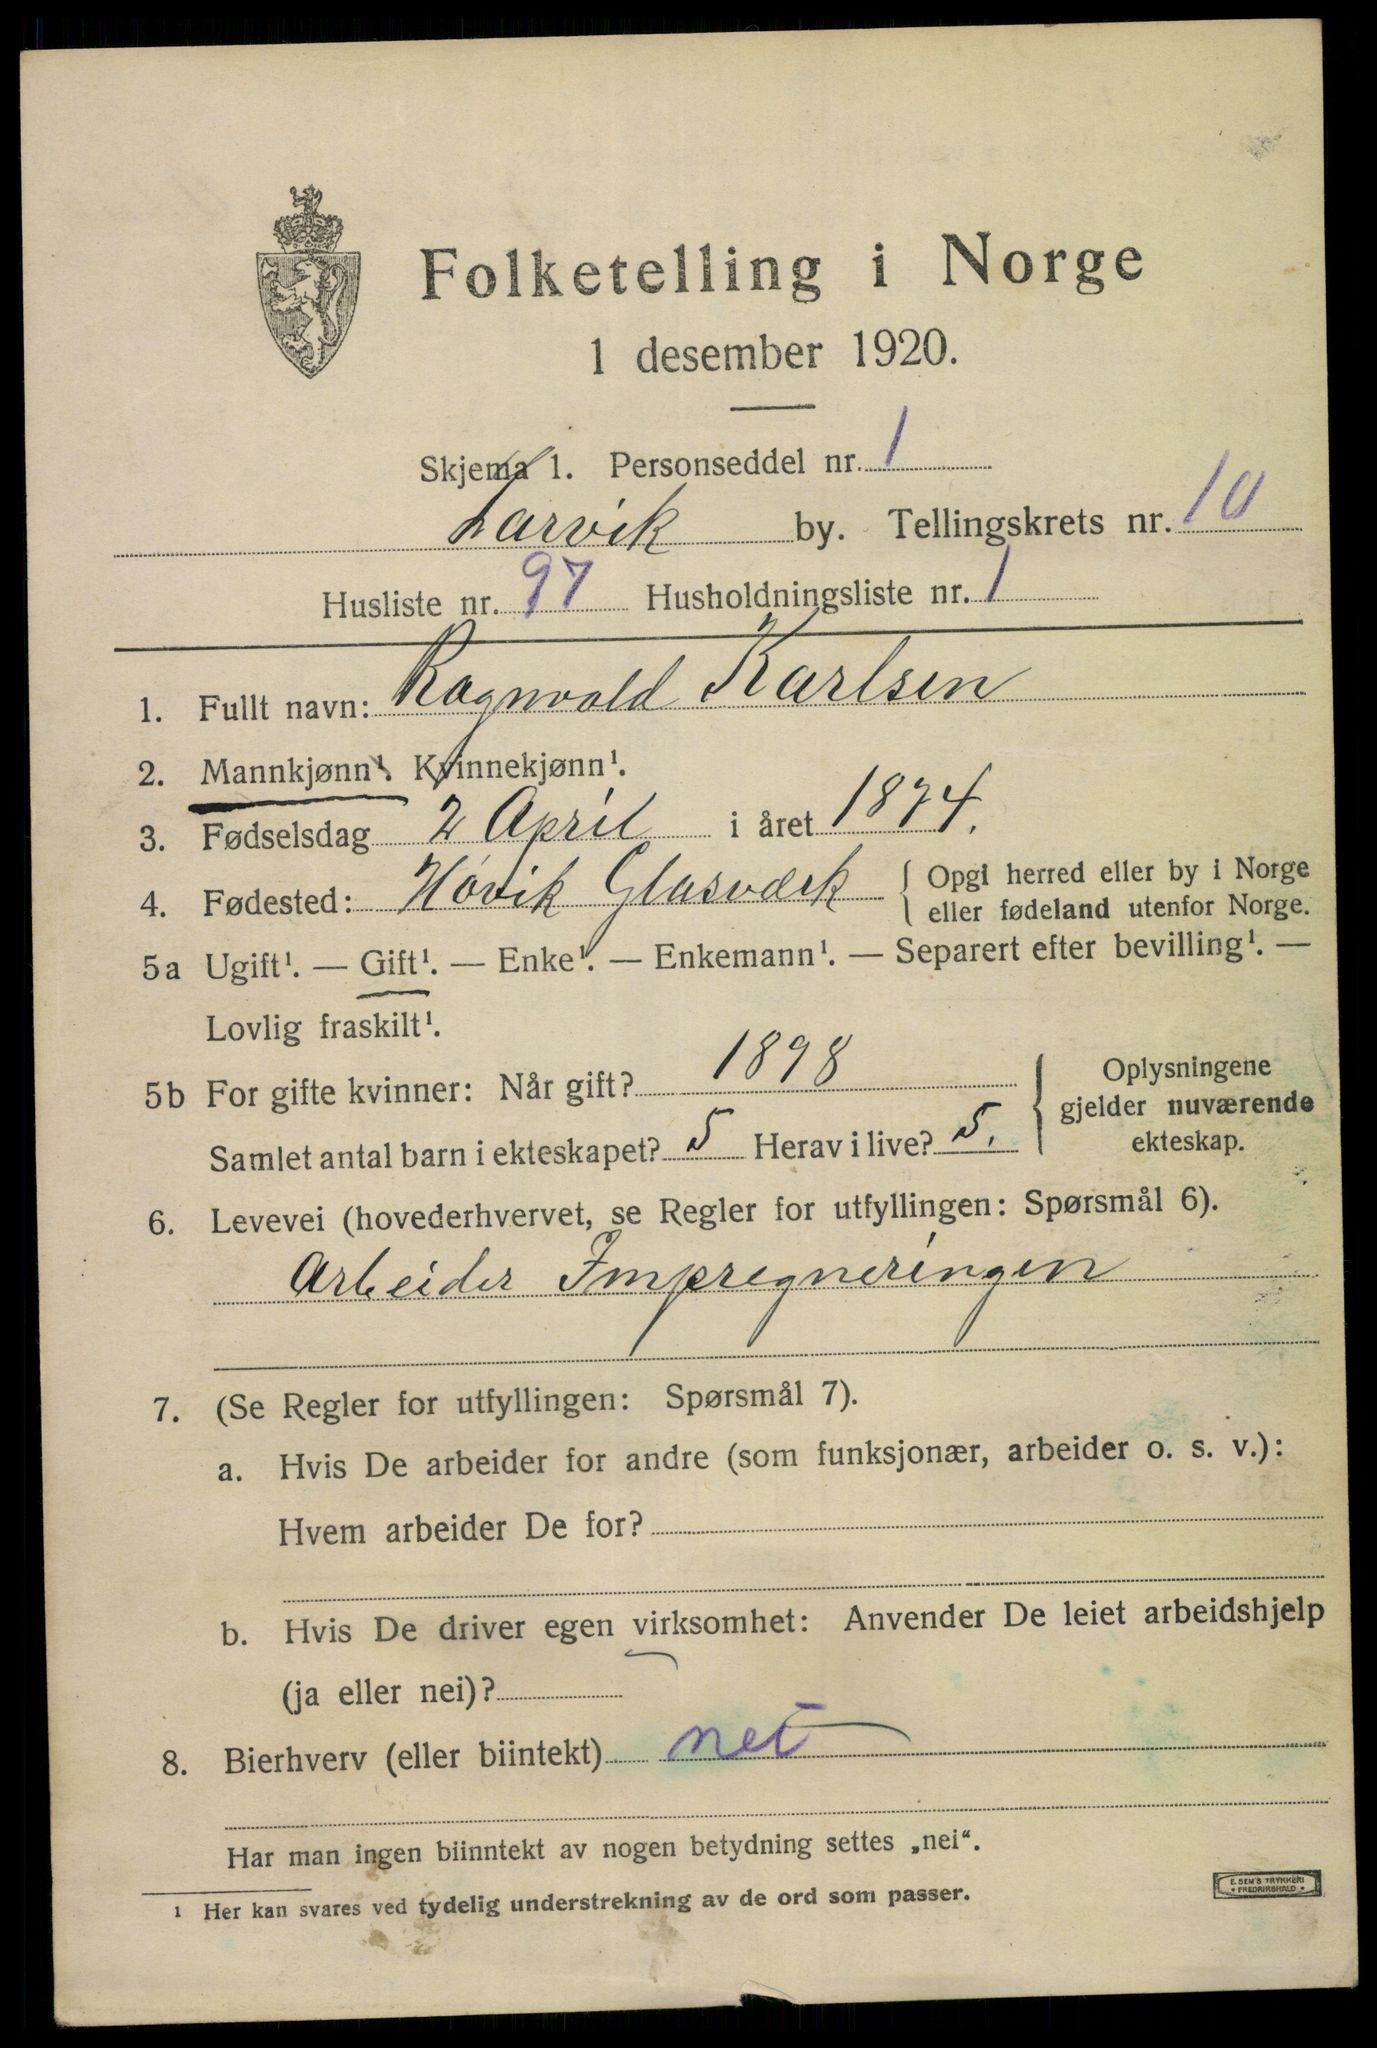 Folketelling i Norge
1 desember 1920.
Skjema 1. Personseddel nr. 1
Larvik by. Tellingskrets nr. 10
Husliste nr. 97 Husholdningsliste nr. 1
1. Fullt navn: Ragnvald Karlsen
2. Mannkjønn¹. Kvinnekjønn¹.
3. Fødselsdag 2 April i året 1874.
4. Fødested: Høvik Glasværk { Opgi herred eller by i Norge
eller fødeland utenfor Norge.
5a Ugift¹. — Gift¹. — Enke¹. — Enkemann¹. — Separert efter bevilling¹. —
Lovlig fraskilt¹.
5b For gifte kvinner: Når gift? 1898
Samlet antal barn i ekteskapet? 5 Herav i live? 5.
Oplysningene
gjelder nuværende
ekteskap.
6. Levevei (hovederhvervet, se Regler for utfyllingen: Spørsmål 6).
Arbeider Impregneringen
7. (Se Regler for utfyllingen: Spørsmål 7).
a. Hvis De arbeider for andre (som funksjonær, arbeider o. s. v.):
Hvem arbeider De for?
b. Hvis De driver egen virksomhet: Anvender De leiet arbeidshjelp
(ja eller nei)?
8. Bierhverv (eller biintekt) nei
Har man ingen biinntekt av nogen betydning settes „nei“.
¹ Her kan svares ved tydelig understrekning av de ord som passer.
E. SEM'S TRYKKERI
* FREDRIKSHALD *